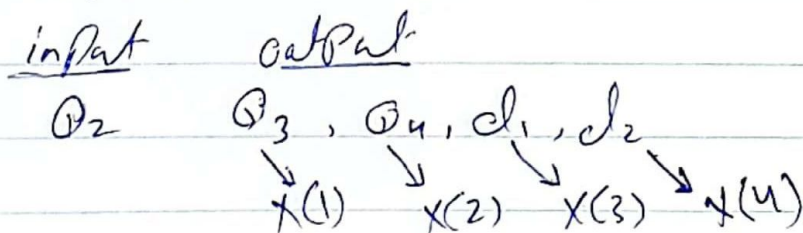 input output
θ2 θ3, θ4, d1, d2
x(1) x(2) x(3) x(4)